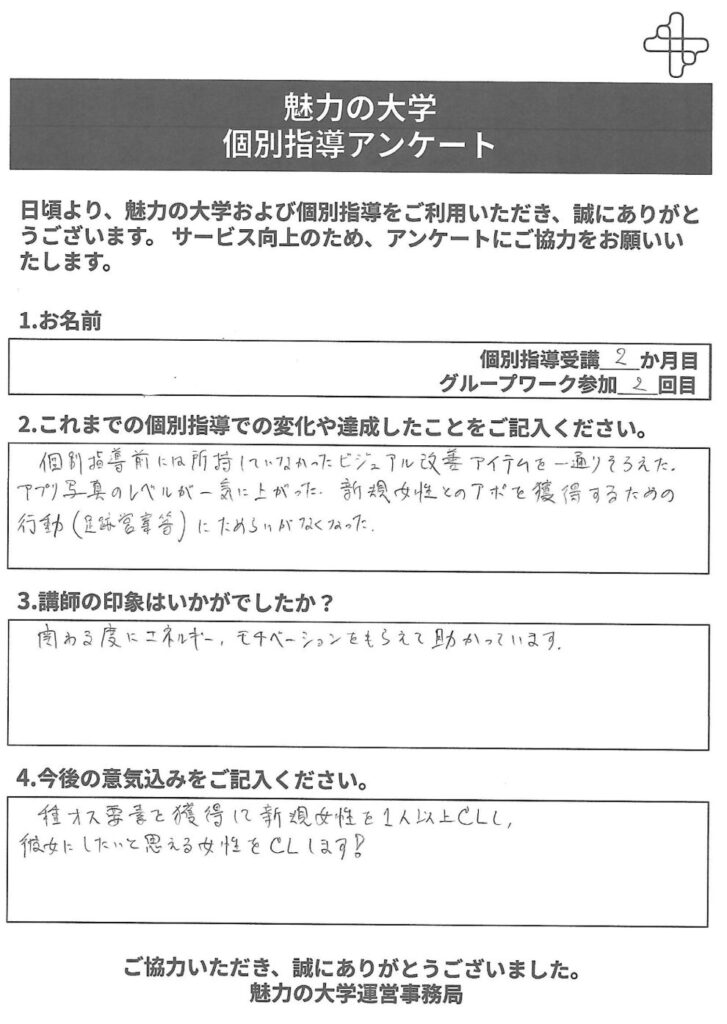 魅力の大学
個別指導アンケート
日頃より、魅力の大学および個別指導をご利用いただき、誠にありがと
うございます。 サービス向上のため、アンケートにご協力をお願いい
たします。
1.お名前
個別指導受講 2 か月目
グループワーク参加 2 回目
2.これまでの個別指導での変化や達成したことをご記入ください。
個別指導前には所持していなかったビジュアル改善アイテムを一通りそろえた。
アプリ写真のレベルが一気に上がった。新規女性とのアポを獲得するための
行動(足跡営業等)にためらいがなくなった。
3.講師の印象はいかがでしたか？
関わる度にエネルギー、モチベーションをもらえて助かっています。
4.今後の意気込みをご記入ください。
種オス要素を獲得して新規女性を1人以上CLし、
彼女にしたいと思える女性をCLします!
ご協力いただき、誠にありがとうございました。
魅力の大学運営事務局